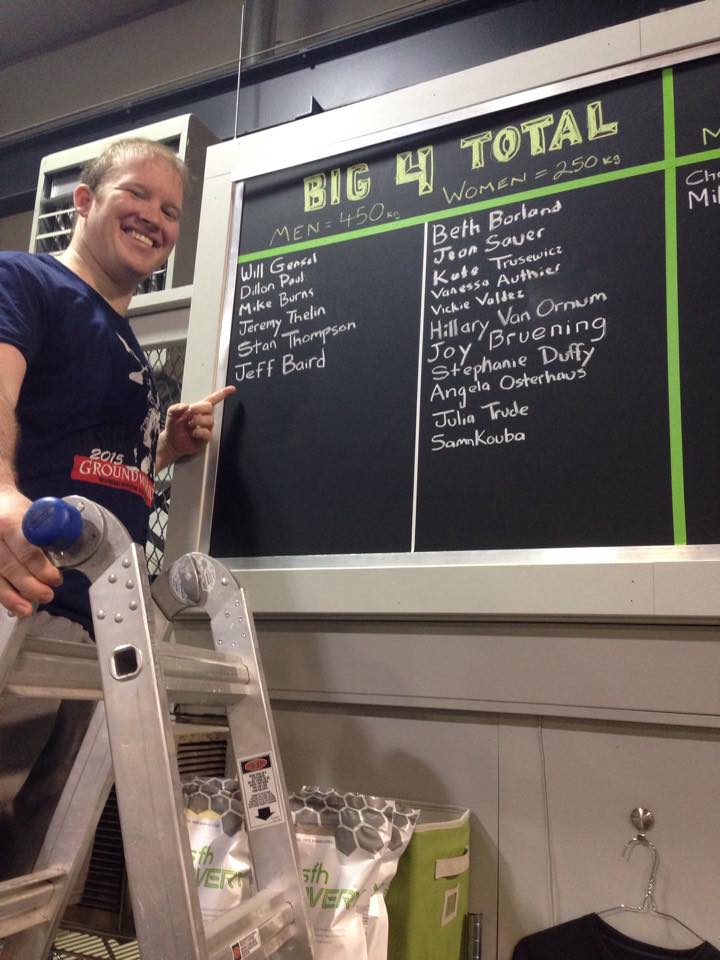 BIG 4 TOTAL
MEN = 450 KG
WOMEN = 250 KG
Will Gensel
Dillon Paul
Mike Burns
Jeremy Thelin
Stan Thompson
Jeff Baird
Beth Borland
Jean Sauer
Kate Trusewicz
Vanessa Authier
Vickie Valdez
Hillary Van Ornum
Joy Bruening
Stephanie Duffy
Angela Osterhaus
Julia Trude
Samn Kouba
M
Ch
Mil
2015
GROUND
sfh
VERY
sfh
OVERY